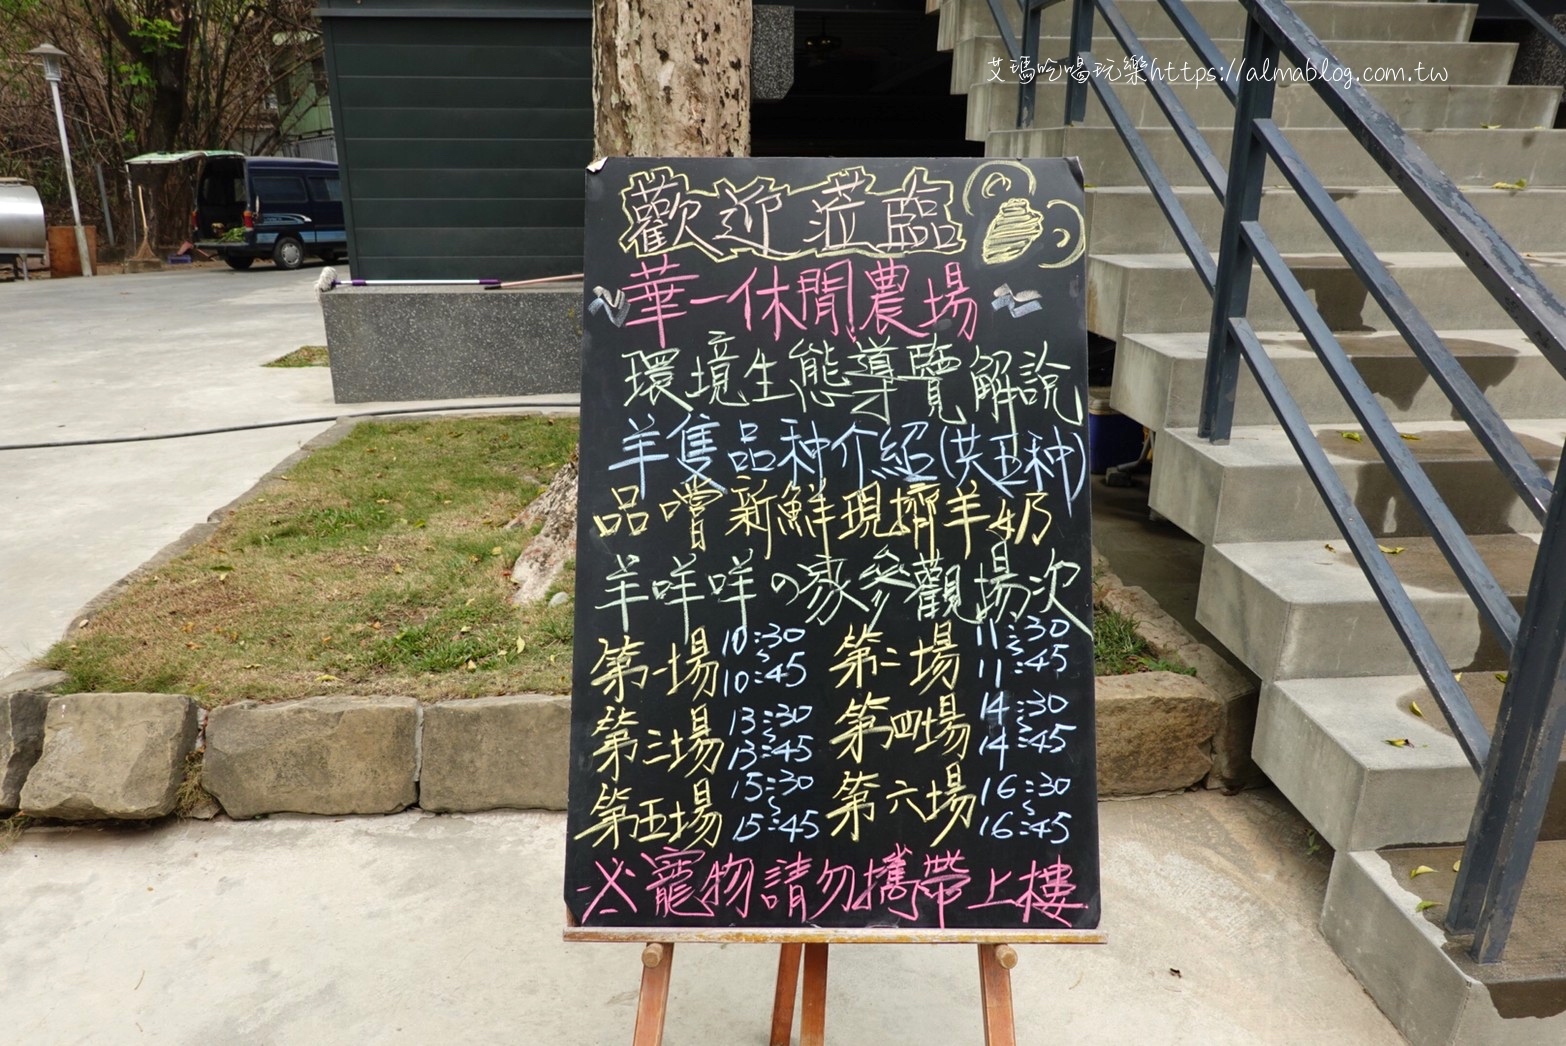 艾瑪吃喝玩樂https://almablog.com.tw
歡迎蒞臨
~華一休閒農場~
環境生態導覽解說
羊隻品种介紹(共五种)
品嚐新鮮現擠羊奶
羊咩咩の家參觀場次
第一場 10:30~10:45 第二場 11:30~11:45
第三場 13:30~13:45 第四場 14:30~14:45
第五場 15:30~15:45 第六場 16:30~16:45
※寵物請勿攜帶上樓